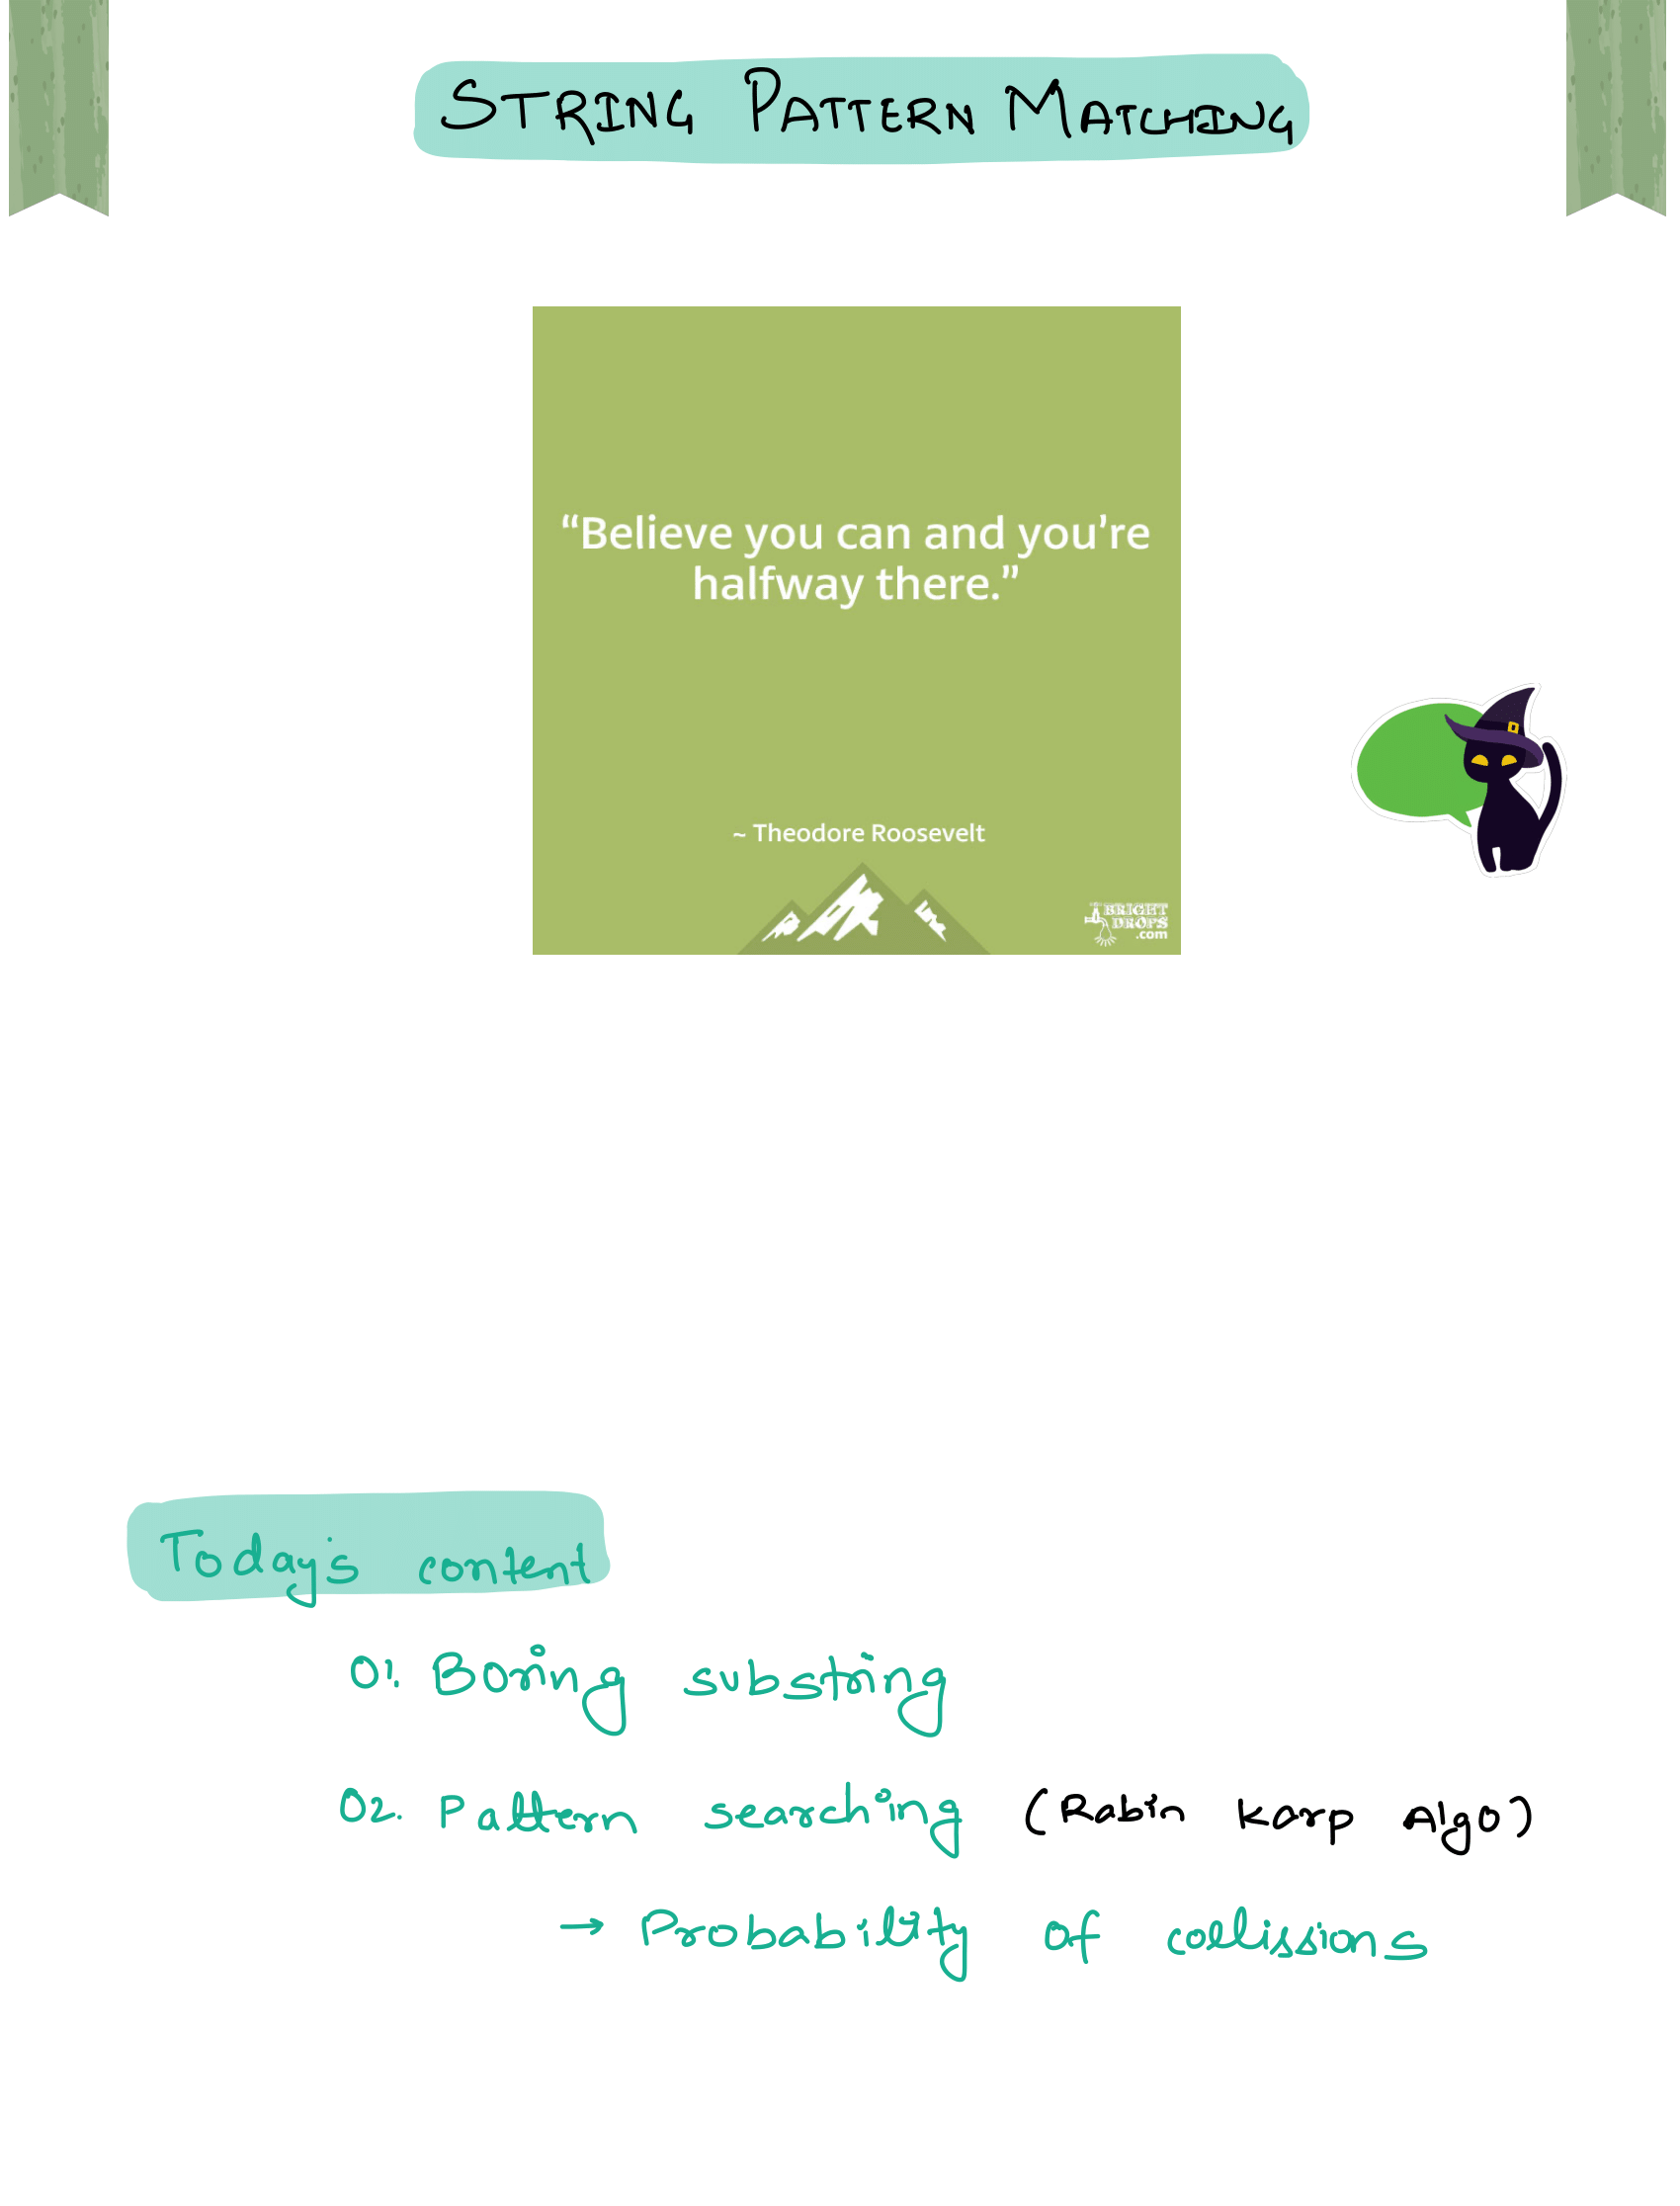 STRING PATTERN MATCHING
“Believe you can and you’re
halfway there.”
~ Theodore Roosevelt
BRIGHT
DROPS
.com
Today's content
01. Boring substring
02. Pattern searching (Rabin Karp Algo)
→ Probability of collissions